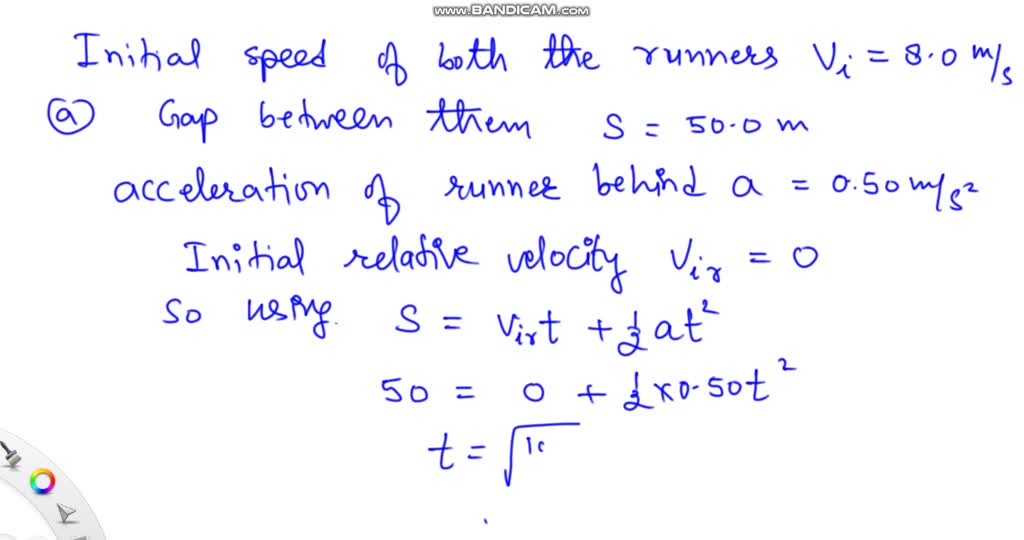 www.BANDICAM.com
Initial speed of both the runners Vi = 8.0 m/s
ⓐ Gap between them S = 50.0 m
acceleration of runner behind a = 0.50 m/s²
Initial relative velocity Vir = 0
So using. S = Virt + ½ at²
50 = 0 + ½ x0.50t²
t = √10